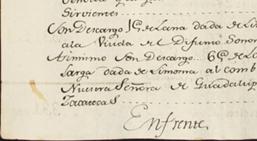 Sirvientes
Son Descargo 1@ de Lana dada de Li
ala Viuda del Difunto Sono
Asimismo Son Descargo 6@ de La
larga dada de Limosna al Comb
Nuestra Señora de Guadalup
Zacatecas
Enfrente